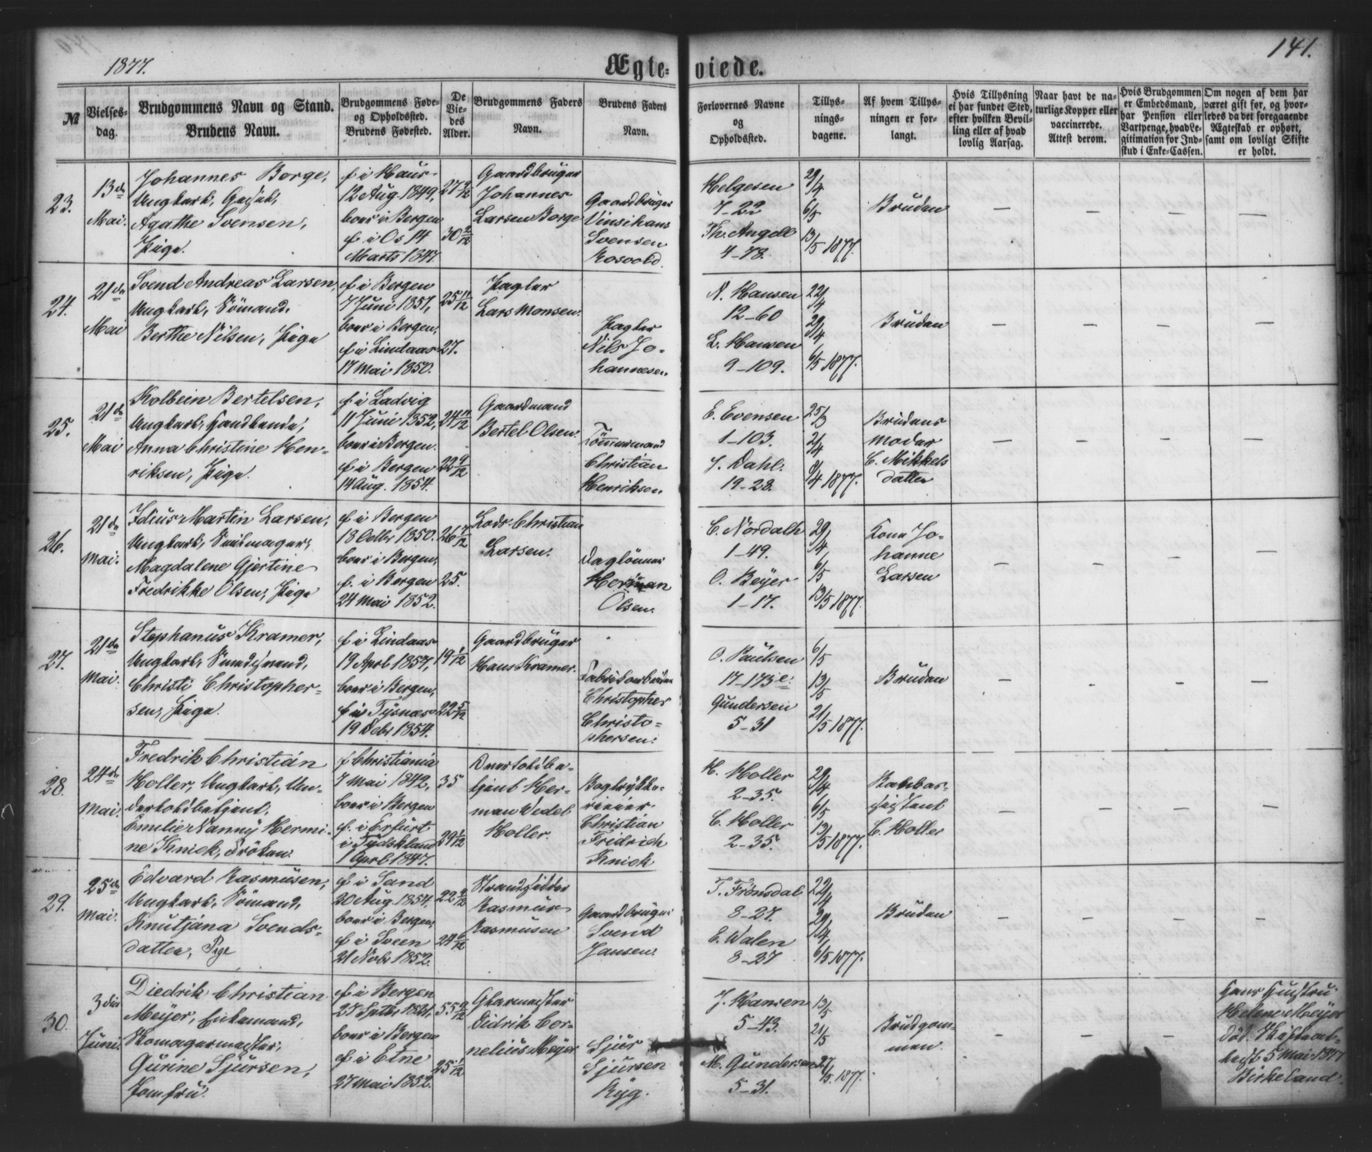 1877.
Ægteviede.
141.
№
Vielses-
dag.
Brudgommens Navn og Stand.
Brudens Navn.
Brudgommens Føde-
og Opholdssted.
Brudens Fødested.
De
Vie-
des
Alder.
Brudgommens Faders
Navn.
Brudens Faders
Navn.
Forlovernes Navne
og
Opholdssted.
Tillys-
nings-
dagene.
Af hvem Tillys-
ningen er for-
langt.
Hvis Tillysning
ei har fundet Sted,
efter hvilken Bevil-
ling eller af hvad
lovlig Aarsag.
Naar havt de na-
turlige Kopper eller
vaccinerede.
Attest derom.
Hvis Brudgommen
er Embedsmand,
har Pension eller
Vartpenge, hvad Le-
gitimation for Ind-
skud i Enke-Cassen.
Om nogen af dem har
været gift før, og hvor-
ledes da det foregaaende
Ægteskab er ophørt,
samt om lovligt Skifte
er holdt.
23.
13de
Mai.
Johannes Borge,
Ungkarl,
Agathe Svensen,
Pige.
f. i Haus
12 Aug. 1849,
boer i Bergen
f. i Os 14
Marts 1847
27 9/12
30 2/12
Gaardbruger
Johannes
Larsen Borge
Gaardbruger
Svensen
Helgesen
7-22
Th. Angell
4-78.
29/4
6/5
13/5 1877.
Bruden
24.
21de
Mai
Svend Andreas Larsen,
Ungkarl, Sömand,
Berthe Nilsen, Pige
f. i Bergen
7 Juni 1851,
boer i Bergen,
f. i Lindaas
17 Mai 1850.
25 11/12
27.
Pagter
Lars Monsen.
Pagter
Nils Jo-
hannesen.
A. Hansen
12-60
L. Hansen
9-109.
22/4
29/4
6/5 1877.
Bruden
25.
21de
Mai
Kolbein Bertelsen,
Ungkarl, Handlende,
Anna Christine Hen-
riksen, Pige.
f. i Ladvig
11 Juni 1852,
boer i Bergen.
f. i Bergen
14 Aug. 1854.
24 11/12
22 9/12
Gaardmand
Bertel Olsen.
Tömmermand
Christian
Henriksen
E. Evensen
1-103.
J. Dahl.
19-28.
25/3
2/4
9/4 1877.
Brudens
Moder
C. Mikkels
datter
26.
21de
Mai.
Martin Larsen,
Ungkarl,
Magdalene Gjertine
Fredrikke Olsen, Pige
f. i Bergen
18 Octbr. 1850.
boer i Bergen,
f. i Bergen
24 Mai 1852.
26 7/12
25.
Lods Christian
Larsen.
Daglönner
Herman
Olsen.
C. Nordahl
1-49.
O. Beyer
1-17.
29/4
6/5
13/5 1877.
Kone Jo-
hanne
Larsen
27.
21de
Mai.
Stephanus Kramer,
Ungkarl,
Christi Christopher-
sen, Pige.
f. i Lindaas
19 April 1857,
boer i Bergen,
f. i Tysnæs
19 Debr. 1854.
19 1/12
22 5/12
Gaardbruger
Hans Kramer.
Christopher
Christo-
phersen.
O. Paulsen
17-173 e.
Gundersen
5-31
6/5
13/5
21/5 1877.
Bruden
28.
24de
Mai.
Fredrik Christian
Holler, Ungkarl, Un-
dertoldbetjent.
Emilie Nanny Hermi-
ne Knick, Fröken.
f. Christiania
7 Mai 1842,
boer i Bergen
f. i Erfurt
i Tydskland
1 April 1847.
35
29 1/12
Overtoldbe-
tjent Her-
man Wedel
Holler.
Bogtrykke-
rieier
Christian
Fridrich
Knick
H. Holler
2-35.
C. Holler
2-35.
29/4
6/5
13/5 1877.
C. Holler
29.
25de
Mai.
Edvard Rasmusen,
Ungkarl, Sömand,
Knutjana Svends-
datter, Pige
f. i Sand
20 Aug. 1854,
boer i Bergen,
f. i Sveen
21 Novb. 1852.
22 9/12
24 6/12
Strandsidder
Rasmus
Rasmusen
Gaardbruger
Svend
Jansen.
T. Frönsdal
8-27.
E. Walen
8-27
22/4
29/4
6/5 1877.
Bruden
30.
3die
Juni.
Diedrik Christian
Meyer, Enkemand,
Garvermester,
Gurine Sjursen,
Jomfru.
f. i Bergen
27 Septbr. 1821,
boer i Bergen
f. i Etne
27 Mai 1852.
55 8/12
25
Glarmester
Didrik Cor-
nelius Meyer
Sjur
Sjursen
Ryg.
J. Hansen
5-43.
M. Gundersen
5-31.
13/5
21/5
27/5 1877.
Brudgom-
men.
Hans Hustru
Helene Meyer
död. Skifteat-
test 5 Mai 1877
Birkeland.